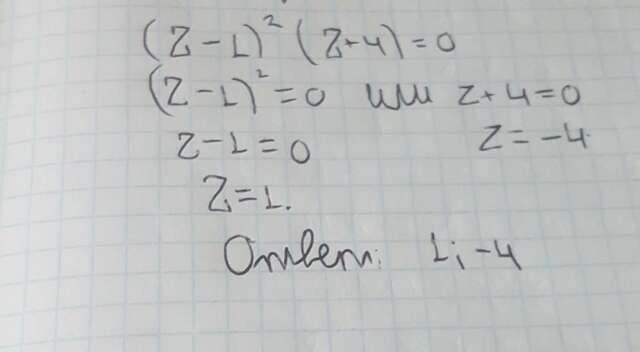 (z-1)²(z+4)=0
(z-1)²=0 или z+4=0
z-1=0 z=-4.
z=1.
Ответ: 1; -4